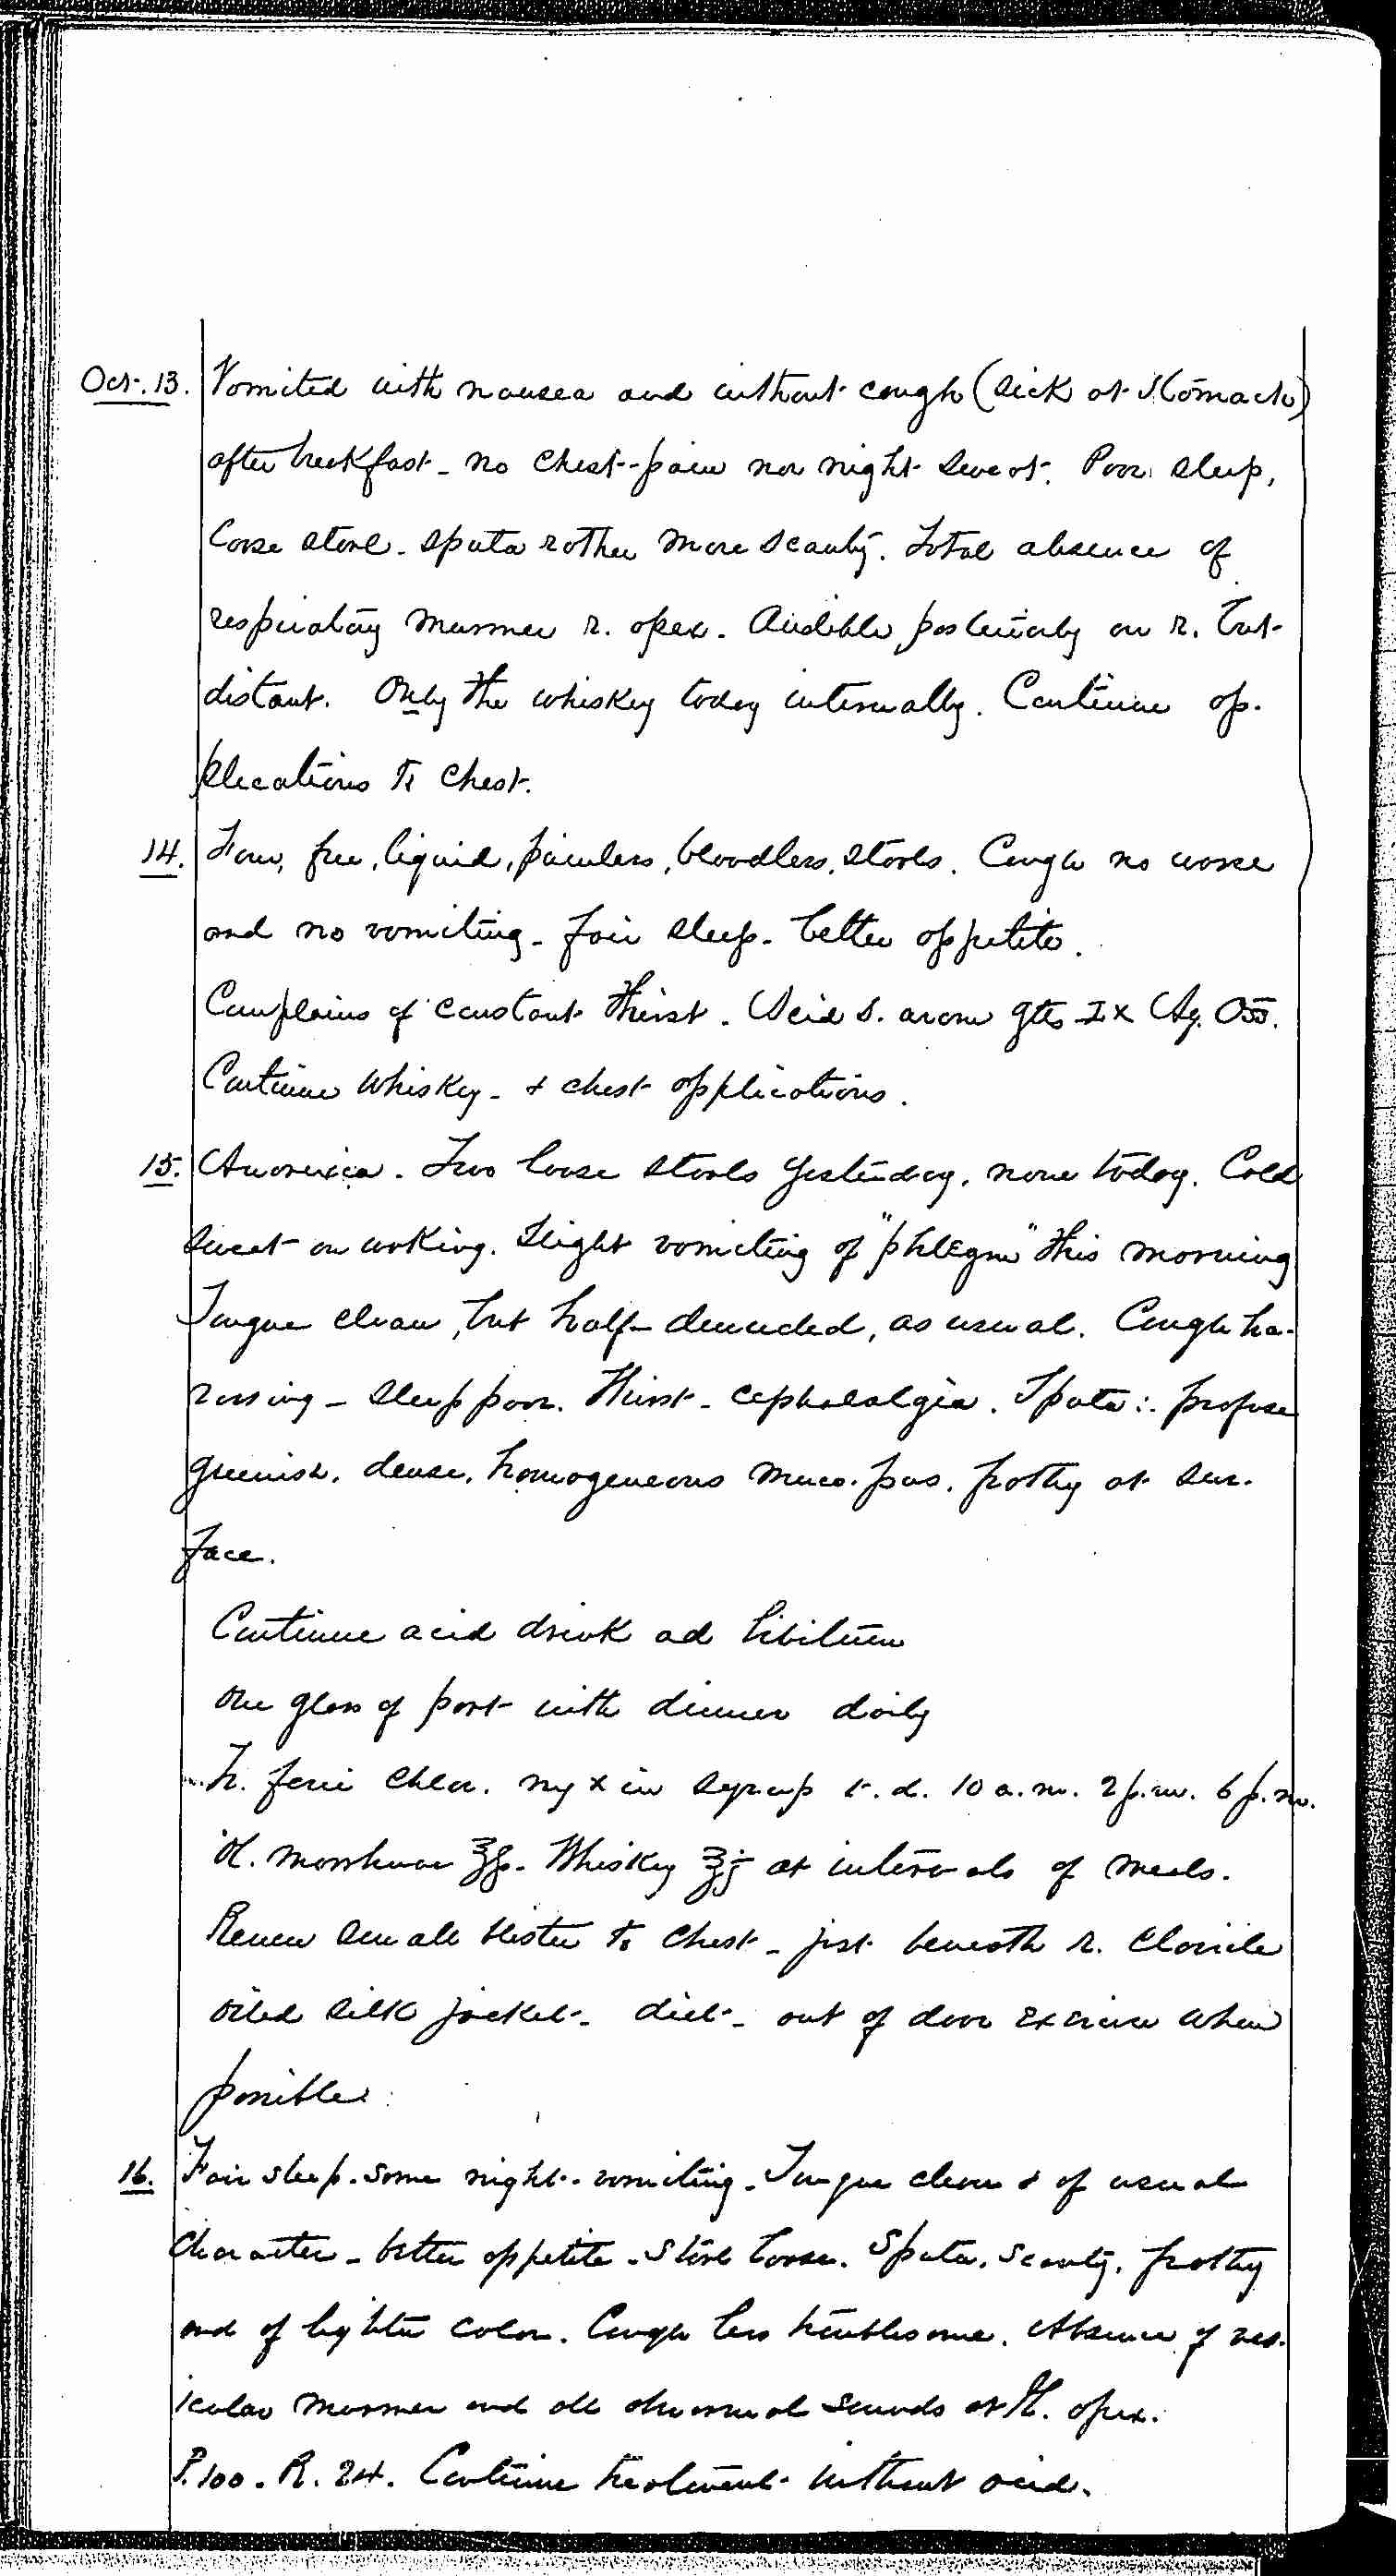 Oct. 13. Vomited with nausea and without cough (sick at stomach)
after breakfast - no chest-pain nor night sweat. Poor sleep,
loose stool - sputa rather more scanty. Total absence of
respiratory murmur r. apex. Audible posteriorly on r. but
distant. Only the whiskey today internally. Continue ap-
plications to chest.
14. Four, free, liquid, painless, bloodless, stools. Cough no worse
and no vomiting - fair sleep - better appetite.
Complains of constant thirst. Acid S. arom gtts Aq.
Continue whiskey - & chest applications.
15. Anorexia. Two loose stools yesterday, none today. Cold
sweat on waking. Slight vomiting of "phlegm" this morning
Tongue clean, but half-denuded, as usual. Cough ha-
rassing - sleep poor. Thirst - cephalalgia. Sputa: profuse
greenish, dense, homogeneous muco-pus, frothy at sur-
face.
Continue acid drink ad libitum
One glass of port with dinner daily
Tr. ferri chlor. ♏ x in syrup t. d. 10 a.m. 2 p.m. 6 p.m.
Ol. morrhuae ℥ß - Whiskey ℥j at intervals of meals.
Renew small blister to chest - just beneath r. clavicle
oiled silk jacket - diet - out of door exercise when
possible.
16. Fair sleep. Some night-vomiting. Tongue clean & of usual
character - better appetite - stool loose. Sputa, scanty, frothy
and of lighter color. Cough less troublesome. Absence of ves-
icular murmur and all abnormal sounds at R. apex.
P. 100. R. 24. Continue treatment without acid.